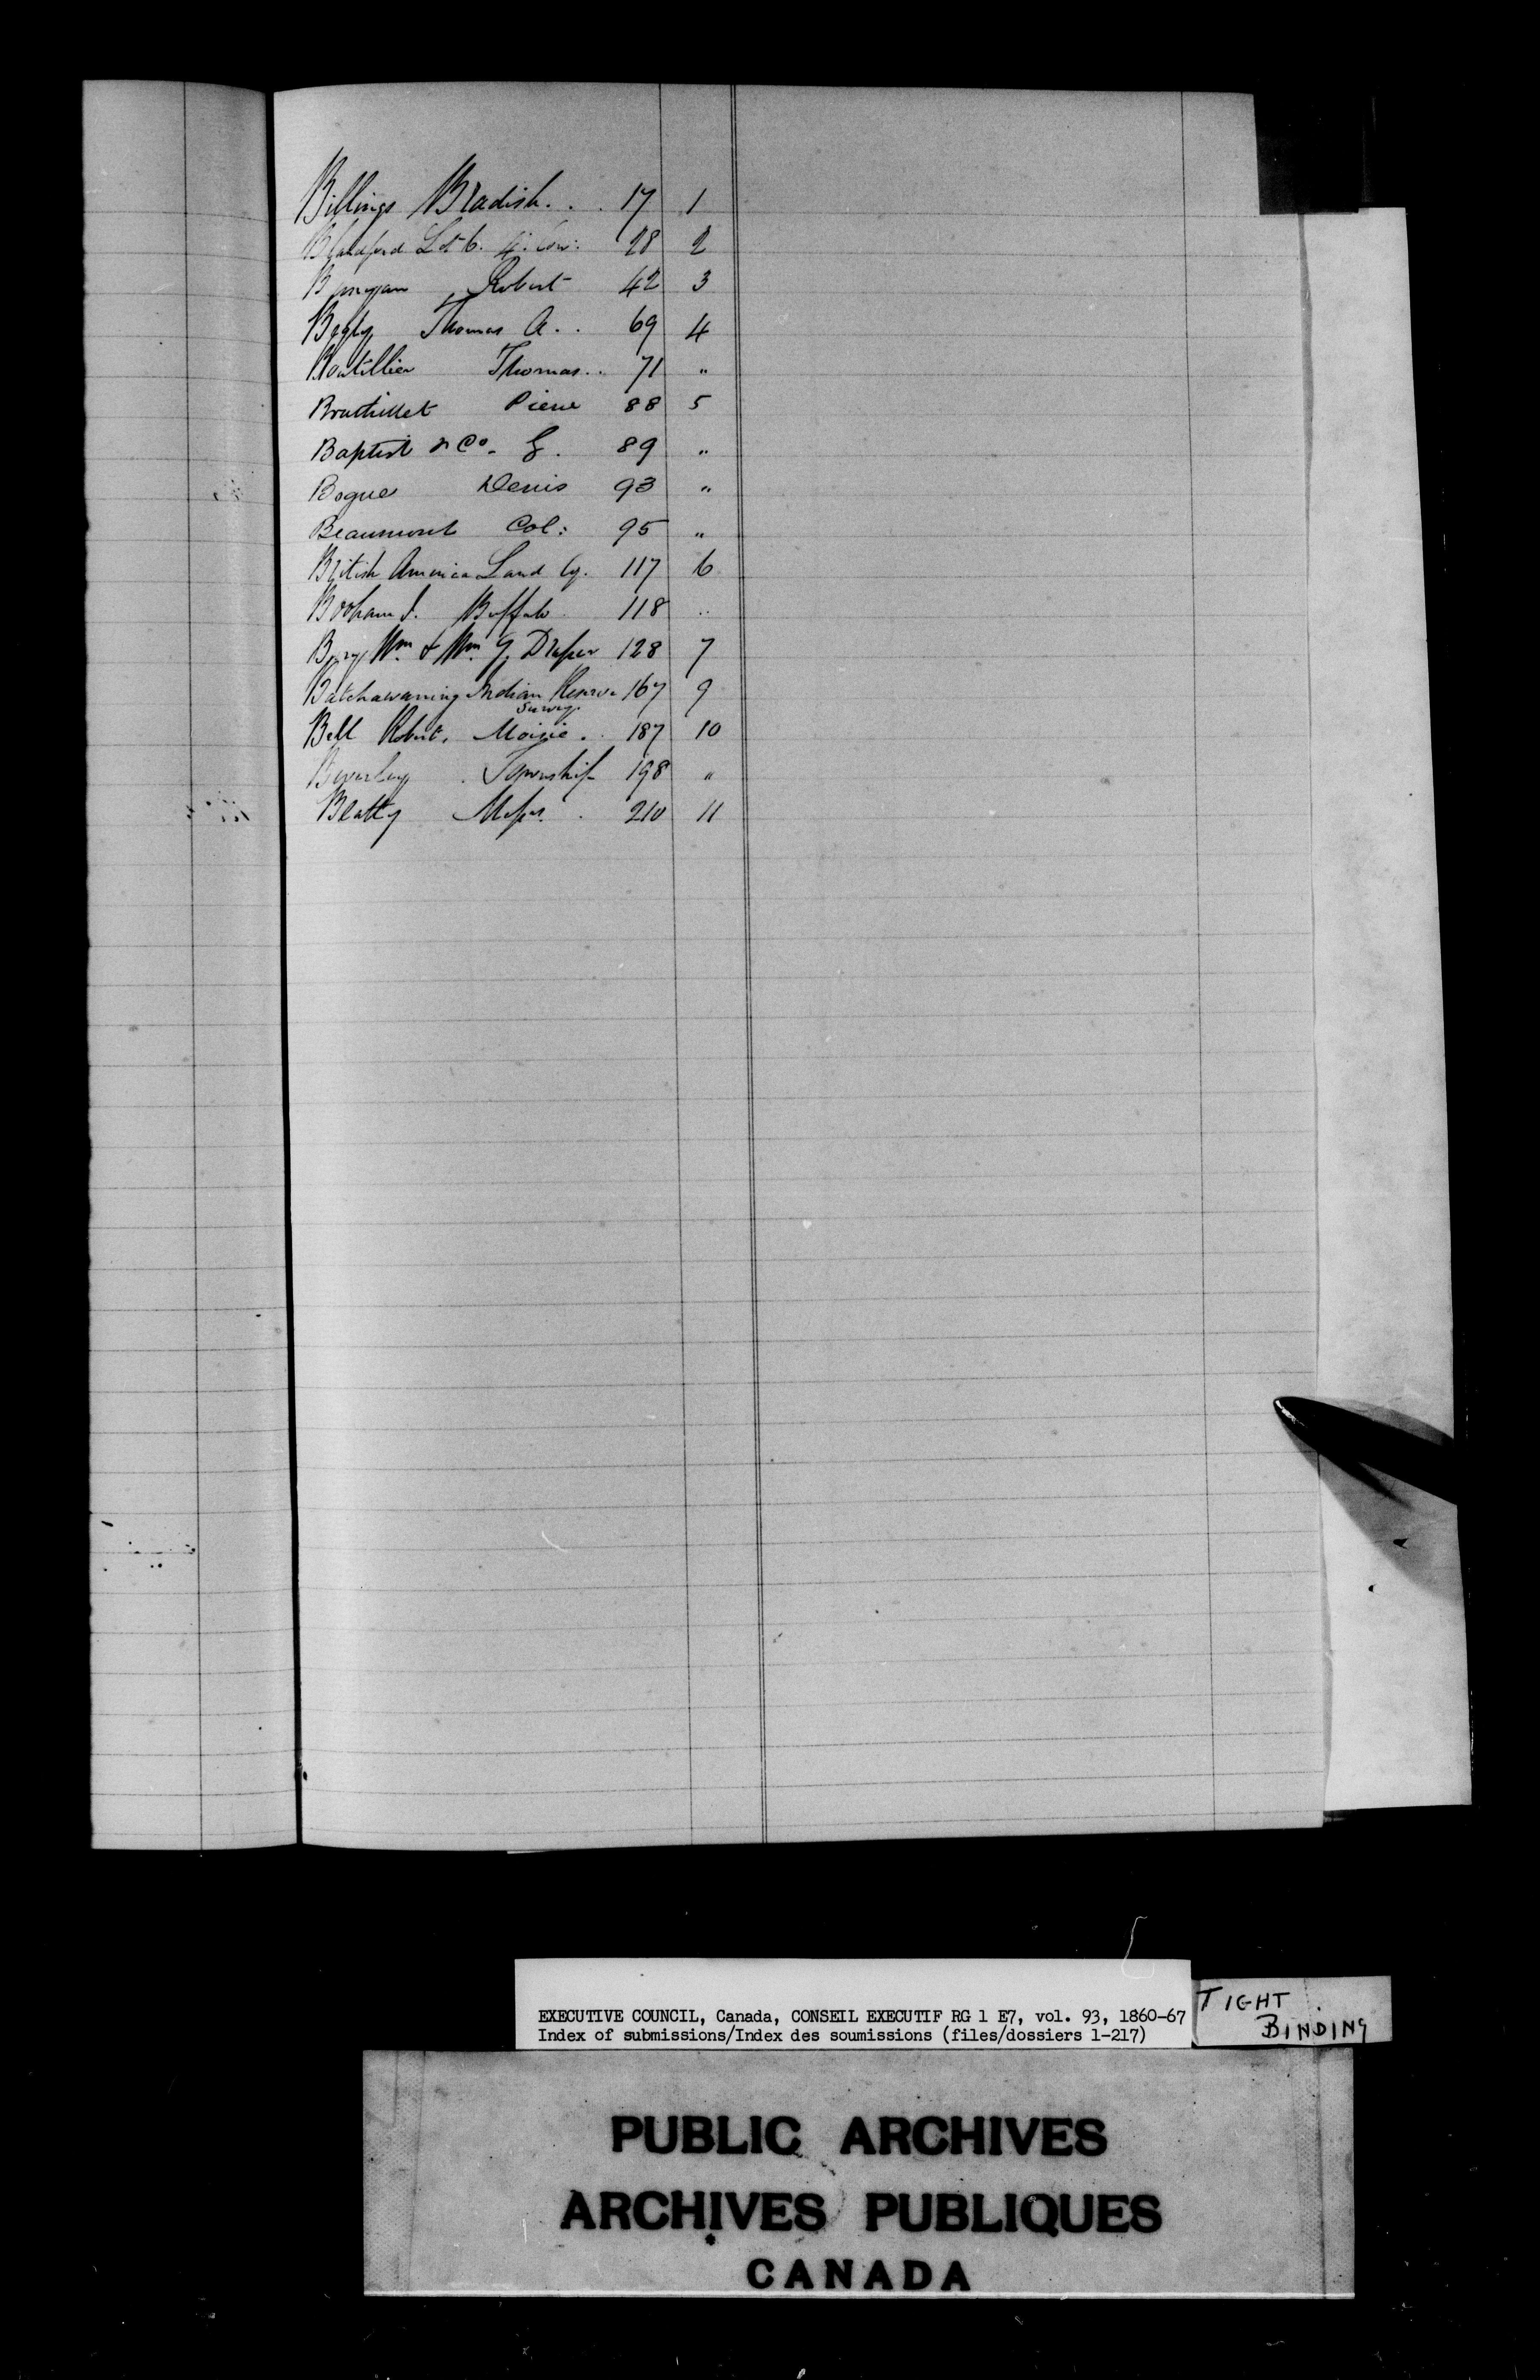 Billings Bradish. . . 17 1
Blandford Lot 6. 4. Con: 28 2
Robert 42 3
Thomas A. . 69 4
Boutillier Thomas. . 71 "
Pierre 88 5
Baptist & Co. G. 89 "
Bogue Denis 93 "
Beaumont Col: 95 "
British America Land Cy. 117 6
Buffalo 118 "
Wm. & Wm. G. Draper 128 7
Batchawaning Indian Reserve 167 9
Survey
Bell Robert, Moisie. . 187 10
Beverley . Township 198 "
Beatty Messrs. . 210 11
EXECUTIVE COUNCIL, Canada, CONSEIL EXECUTIF RG 1 E7, vol. 93, 1860-67
Index of submissions/Index des soumissions (files/dossiers 1-217)
TIGHT
BINDING
PUBLIC ARCHIVES
ARCHIVES PUBLIQUES
CANADA